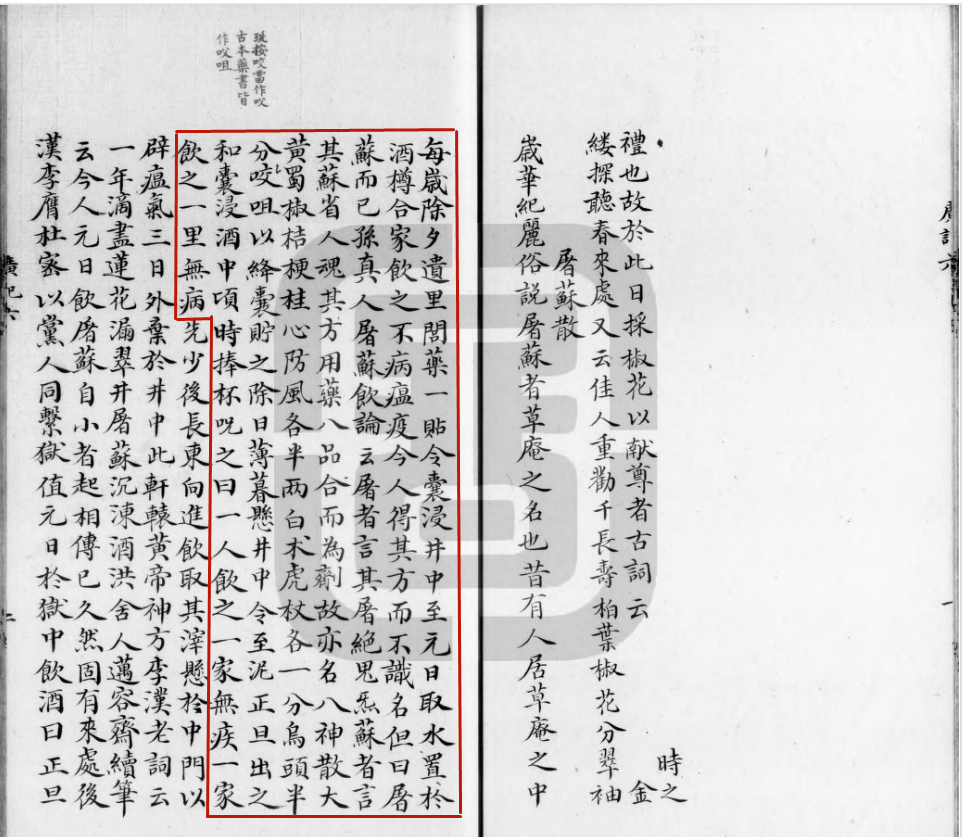 時之
禮也故於此日採椒花以献尊者古詞云金
縷探聽春來處又云佳人重勸千長壽柏葉椒花分翠袖
屠蘇散
歲華紀麗俗說屠蘇者草庵之名也昔有人居草庵之中
按咬當作㕮
古本藥書皆
作㕮咀
每嵗除夕遺里閭藥一貼令囊浸井中至元日取水置於
酒樽合家飲之不病瘟疫今人得其方而不識名但曰屠
蘇而已孫真人屠蘇飲論云屠者言其屠絕鬼炁蘇者言
其蘇省人魂其方用藥八品合而為劑故亦名八神散大
黃蜀椒桔梗桂心防風各半两白术虎杖各一分烏頭半
分咬咀以絳囊貯之除日薄暮懸井中令至泥正旦出之
和囊浸酒中頃時捧杯呪之曰一人飲之一家無疾一家
飲之一里無病先少後長東向進飲取其滓懸於中門以
辟瘟氣三日外棄於井中此軒轅黃帝神方李漢老詞云
一年滴盡蓮花漏翠井屠蘇沉凍酒洪舍人邁容齋續筆
云今人元日飲屠蘇自小者起相傳已久然固有來處後
漢李膺杜宻以黨人同繫獄值元日於獄中飲酒曰正旦